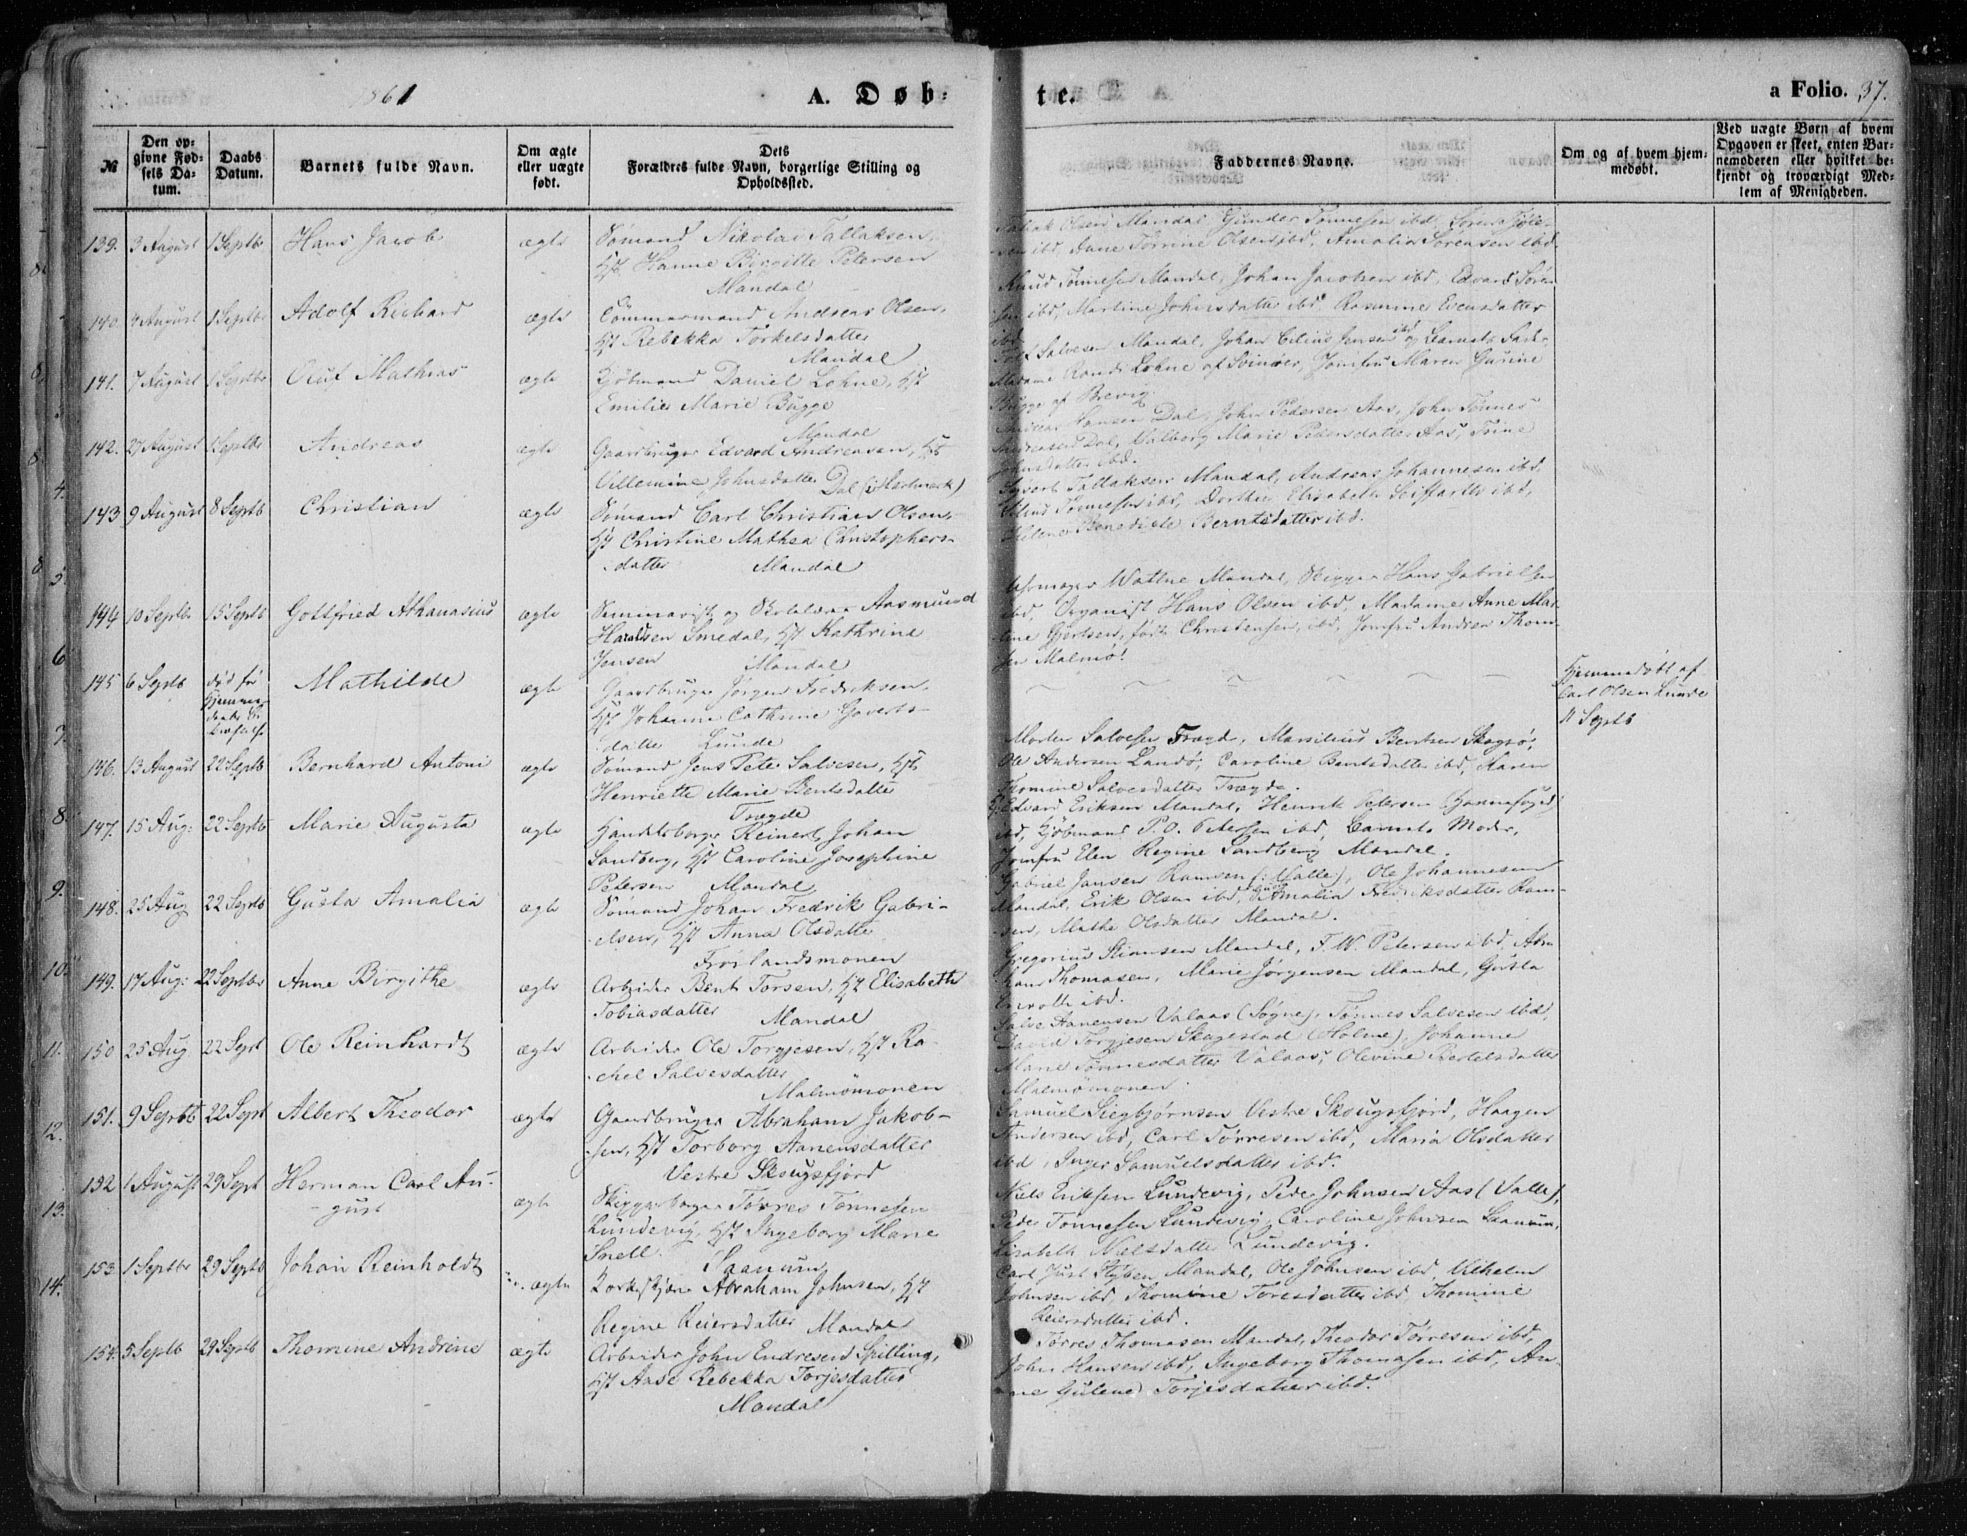 1861
A. Døb-
te.
a Folio. 37.
№
Den op-
givne Fød-
sels Da-
tum.
Daabs
Datum.
Barnets fulde Navn.
Om ægte
eller uægte
født.
Dets
Forældres fulde Navn, borgerlige Stilling og
Opholdssted.
Faddernes Navne.
Om og af hvem hjem-
medøbt.
Ved uægte Børn af hvem
Opgaven er skeet, enten Bar-
nemoderen eller hvilket be-
kjendt og troværdigt Med-
lem af Menigheden.
139. 3 August 1 Septbr Hans Jacob ægte Sømand Nikolai Tallaksen,
Hst Hanne Birgitte Petersen
Mandal
Olsen Mandal, Gunder Tønnesen ibd,
ibd, Anne Tørrine Olsen ibd, Amalia Sørensen ibd.
140. 4 August 1 Septbr Adolf Richard ægte Tømmermand Andreas Olsen,
Hst Rebekka Torkelsdatter
Mandal
Knud Tønnesen Mandal, Johan Jacobsen ibd, Edvard Sören-
sen ibd, Martine Johnsdatter ibd, Rasmine Evensdatter
ibd
141. 7 August 1 Septbr Oluf Mathias ægte Kjøbmand Daniel Lohne, Hst
Emilie Marie Bugge
Mandal
Salvesen Mandal, Johan Jensen ibd og Barnets Fader,
Madame Lohne af Svinøer, Jomfru Maren Gurine
Bugge af Brevig.
142. 27 August 1 Septbr Andreas ægte Gaardbruger Edvard Andreasen, Hst
Villemine Johnsdatter Dal (i Hartmark)
Andreas Hansen Dal, John Pedersen Aas, John Tønnes
Andreasen Dal, Valborg Marie Pedersdatter Aas, Trine
Johnsdatter ibd.
143 9 August 8 Septb Christian ægte Sømand Carl Christian Olsen,
Hst Christine Mathea Christophers-
datter Mandal
Sivert Tallaksen Mandal, Andreas Johannesen ibd,
Tønnesen ibd, Dorthea Elisabeth ibd,
Helene Benedicte Berntsdatter ibd.
144 10 Septb. 15 Septb Gottfried Athanasius ægte Seminarist og Skolelærer Aasmund
Haraldsen Smedal, Hst Kathrine
Jensen Mandal
Wattne Mandal, Skipper Hans Gabrielsen
ibd, Organist Hans Olsen ibd, Madame Anne Mar-
tine Gjertsen, født Christensen, ibd, Jomfru Andrea Thom-
sen Malmö!
145 6 Septb død før
Hjemme-
daabs Be-
kræftelse Mathilde ægte Gaardbruger Jørgen Fredriksen,
Hst Johanne Cathrine Goverts-
datter Lunde
Hjemmedøbt af
Carl Olsen Lunde
11 Septb
146. 13 August 22 Septb Bernhard Antoni ægte Sømand Jens Peter Salvesen, Hst
Henriette Marie Bentsdatter
Tregde
Morten Salvesen Tregde, Marsilius Bentsen Skogsø,
Ole Andersen Landø, Caroline Bentsdatter ibd, Karen
Thomine Salvesdatter Tregde.
147. 15 Aug: 22 Septb Marie Augusta ægte Handelsborger Reinert Johan
Sandberg, Hst Caroline Josephine
Petersen Mandal
Edvard Eriksen Mandal, Henrik Petersen
ibd, Kjøbmand P. O. Petersen ibd, Barnets Moder,
Jomfru Elen Regine Sandberg Mandal.
148. 25 Aug 22 Septb Gusta Amalia ægte Sømand Johan Fredrik Gabri-
elsen, Hst Anna Olsdatter
Froslandsmonen
Gabriel Jansen Ramsen (i Valle), Ole Johannesen
Mandal, Erik Olsen ibd, Amalia Fredriksdatter Ram-
sen, Mathe Olsdatter Mandal.
149. 17 Aug: 22 Septbr Anne Birgithe ægte Arbeider Bent Torsen, Hst Elisabeth
Tobiasdatter Mandal
Gregorius Stiansen Mandal, T. W. Petersen ibd, Abra-
ham Thomasen, Marie Jørgensen Mandal, Gusta
ibd.
150 25 Aug 22 Sept Ole Reinhardt ægte Arbeider Ole Torgjesen, Hst Ra-
chel Salvesdatter
Malmömonen
Salve Aanensen Valaas (Søgne), Tønnes Salvesen ibd,
David Torgjesen Skagestad (Holme), Johanne
Marie Tønnesdatter Valaas, Olevine Bertelsdatter
Malmömonen.
151. 9 Septb 22 Sept Albert Theodor ægte Gaardbruger Abraham Jakob-
sen, Hst Torborg Aanensdatter
Vestre Skougsfjord
Samuel Siegbjørnsen Vestre Skougsfjord, Haagen
Andersen ibd, Carl Tørresen ibd, Maria Olsdatter
ibd, Inger Samuelsdatter ibd.
152 1 August 29 Sept Herman Carl Au-
gust ægte Skipperborger Tørres Tønnesen
Lundevig, Hst Ingeborg Marie
Snell. Saanum
Niels Eriksen Lundevig, Peder Johnsen Aas (Valle),
Peder Tønnesen Lundevig, Caroline Johnsen Saanum,
Lisabeth Nielsdatter Lundevig.
153 1 Septbr 29 Septb Johan Reinholdt ægte Abraham Johnsen, Hst
Regine Reiersdatter Mandal
Carl Just Mandal, Ole Johnsen ibd, Vilhelm
Johnsen ibd, Thomine Toresdatter ibd, Thomine
Reiersdatter ibd.
154. 5 Septb 29 Septb Thomine Andrine ægte Arbeider John Endresen Spilling,
Hst Aase Rebekka Torjesdatter
Mandal
Tørres Thomasen Mandal, Theodor Tørresen ibd,
John Hansen ibd, Ingeborg Thomasen ibd, An-
ne Gulene Torjesdatter ibd.